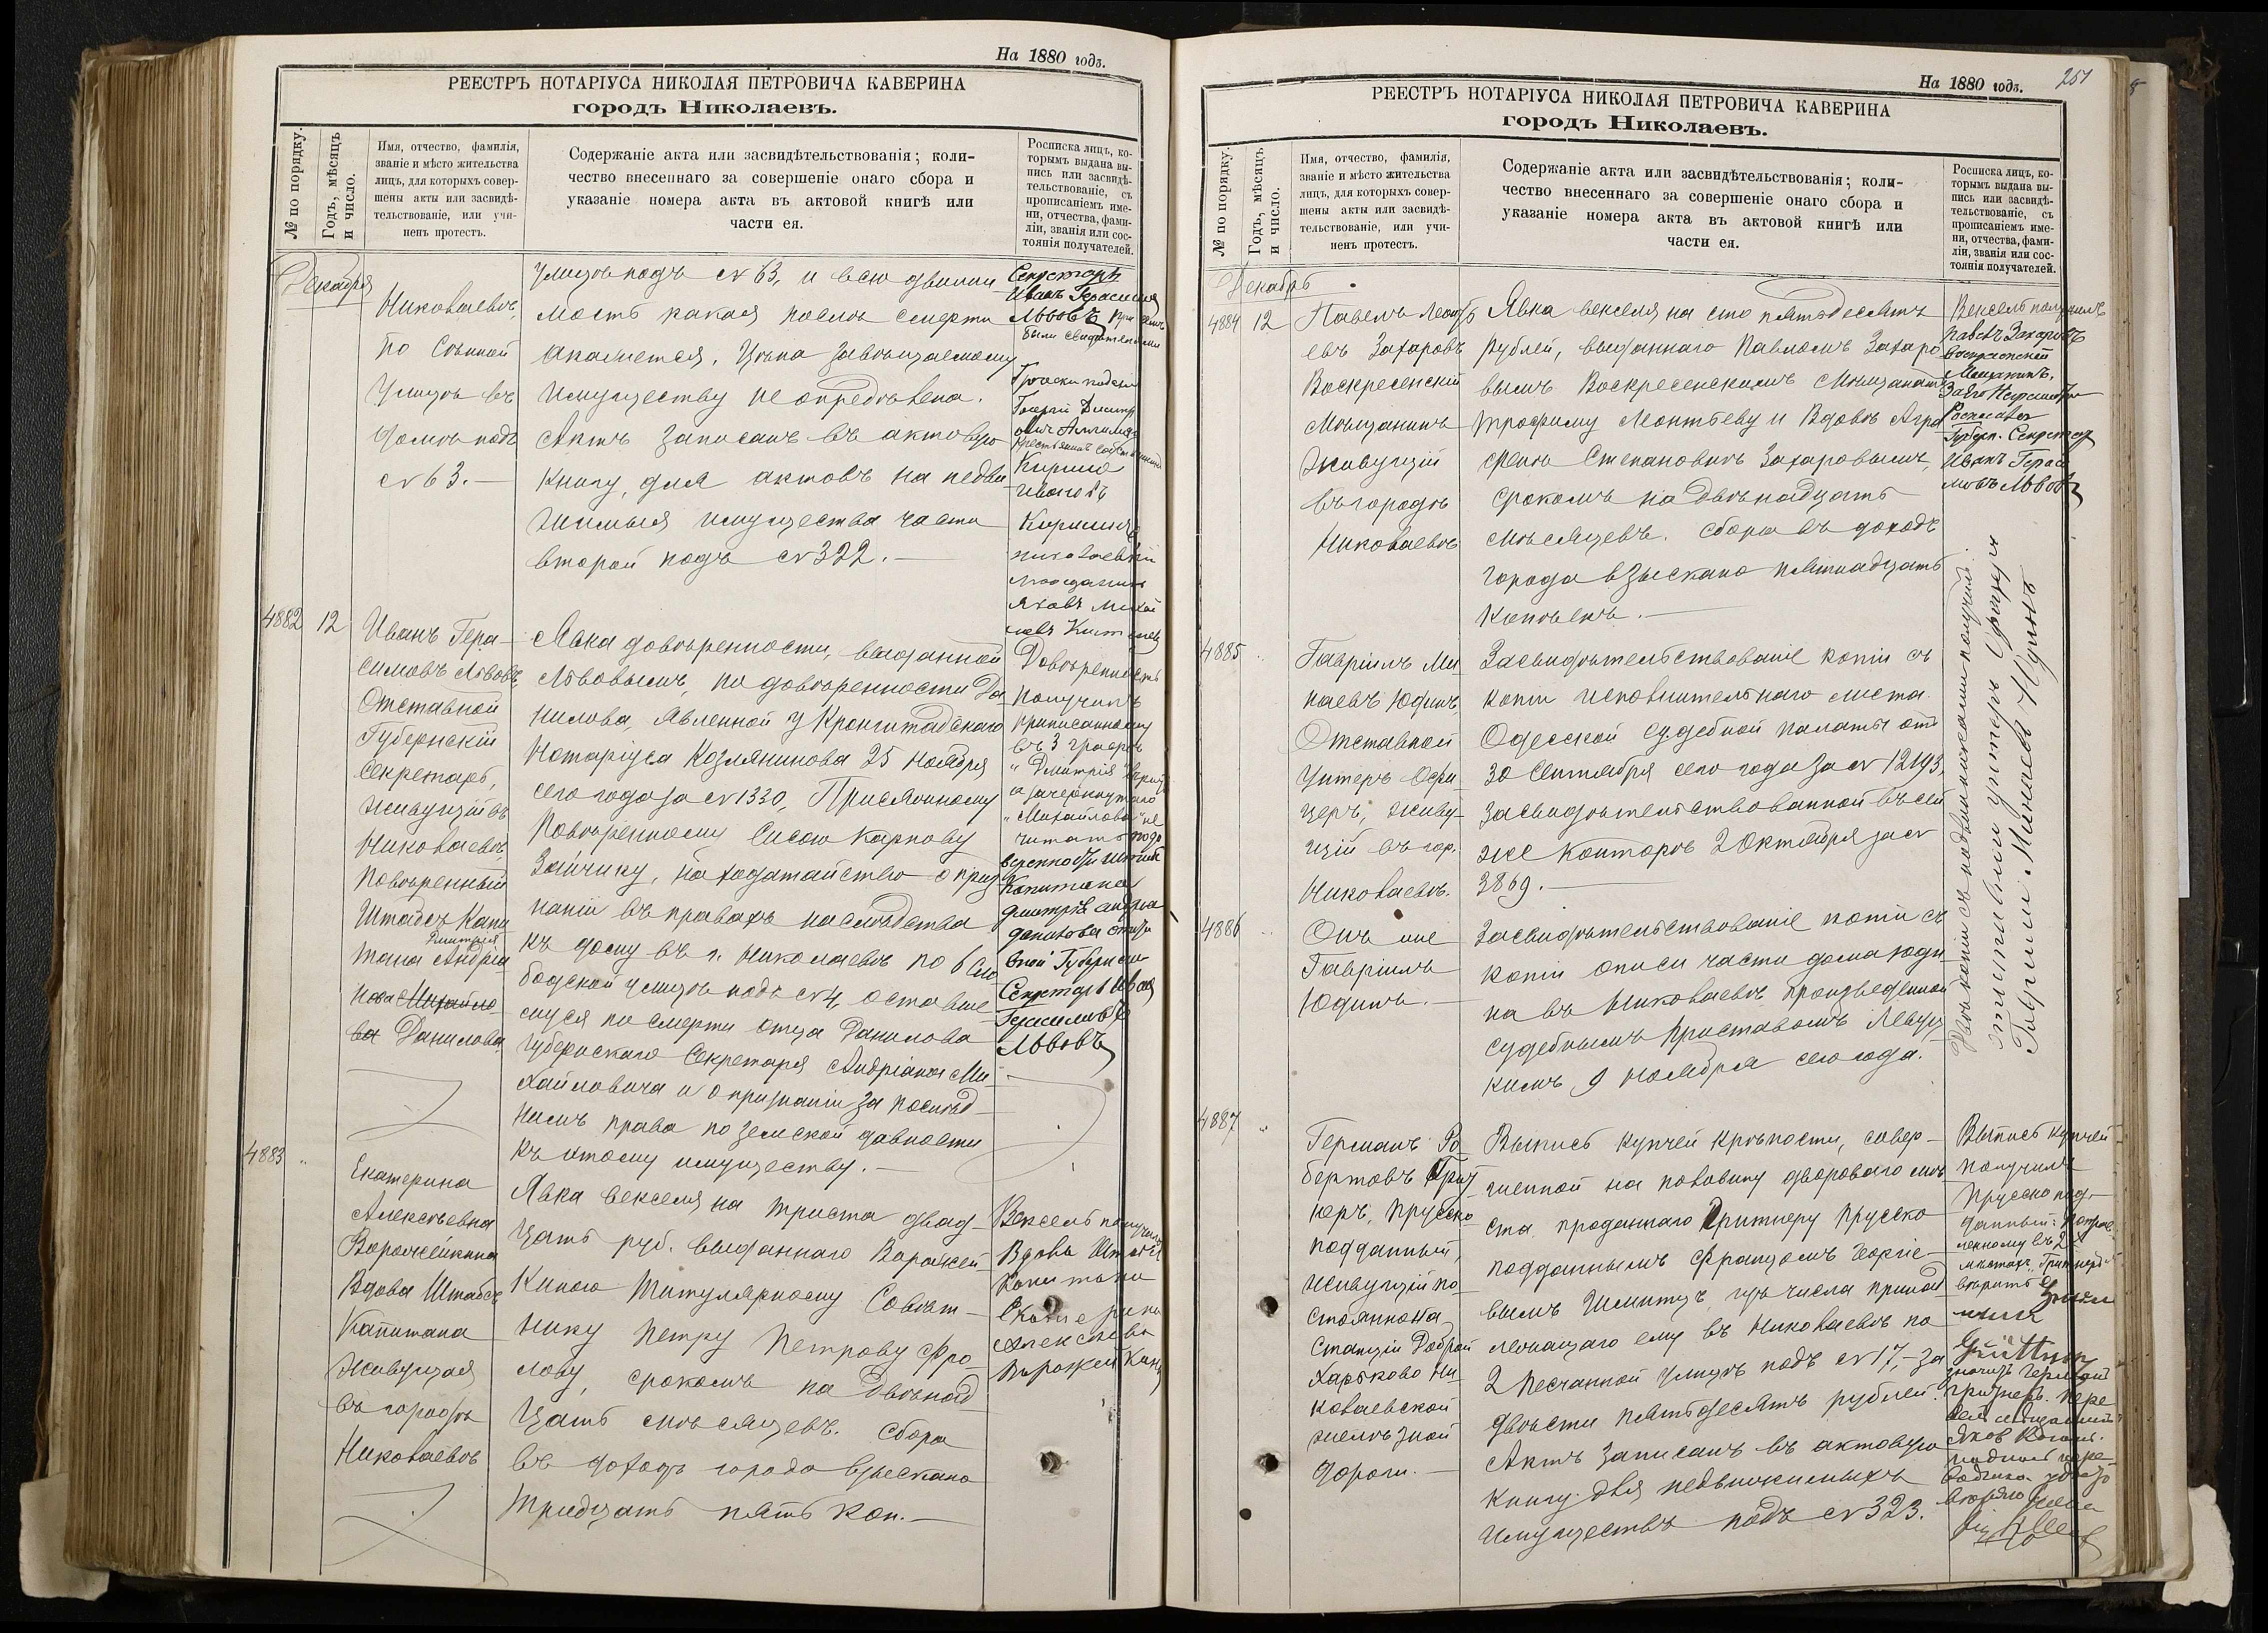 На 1880 годъ.
РЕЕСТРЪ НОТАРІУСА НИКОЛАЯ ПЕТРОВИЧА КАВЕРИНА
городъ Николаевъ.
№ по порядку.
Годъ, мѣсяцъ
и число.
Имя, отчество, фамилія,
званіе и мѣсто жительства
лицъ, для которыхъ совер-
шены акты или засвидѣ-
тельствованіе, или учи-
ненъ протестъ.
Содержаніе акта или засвидѣтельствованія; коли-
чество внесеннаго за совершеніе онаго сбора и
указаніе номера акта въ актовой книгѣ или
части ея.
Росписка лицъ, ко-
торымъ выдана вы-
пись или засвидѣ-
тельствованіе, съ
прописаніемъ име-
ни, отчества, фами-
ліи, званія или сос-
тоянія получателей.
Декабря
Николаевѣ,
по Сѣнной
Улицѣ въ
домѣ подъ
№ 63.—
Улицѣ подъ № 63, и всю движи
мость какая послѣ смерти
окажется. Цѣна завѣщаемому
имуществу не опредѣлена.
Актъ записанъ въ актовую
книгу, для актовъ на недви
жимыя имущества части
второй подъ № 322.—
Секретарь
Иванъ Герасимов
Львовъ При семъ
были свидѣтелями
Кирило
Николаевскій
Яковъ Михай
4882
12
Иванъ Гера-
симовъ Львовъ,
Отставной
Губернскій
Секретарь,
живущій въ
Николаевѣ,
Повѣренный
Штабсъ Капи
Дмитрія
тана Андріа
нова Михайло
ва Данилова.
Явка довѣренности, выданной
Львовымъ, по довѣренности Да
нилова, явленной у Кронштадскаго
Нотаріуса Козлянинова 25 Ноября
сего года за № 1330, Присяжному
Повѣренному Сисою Карпову
Зайчику, на ходатайство о приз
наніи въ правахъ наслѣдства
къ дому въ г. Николаевѣ по 6 Сло
бодской улицѣ подъ № 4 оставше
муся по смерти отца Данилова
Губернскаго Секретаря Андріана Ми
хайловича и о признаніи за послѣд
нимъ права по земской давности
къ этому имуществу.—
Довѣренность
получилъ
приписанному
въ 3 графѣ
"Дмитрія" вѣрить
а зачеркнутаго
"Михайлова" не
читать
Капитана
Дмитрія Андриа
Данилова отста
вной Губернскій
Секретарь Иван
Герасимовъ
Львовъ
4883
"
Екатерина
Алексѣевна
Ворожейкина
Вдова Штабсъ
Капитана
живущая
въ городѣ
Николаевѣ
Явка векселя на триста двад-
цать руб. выданнаго Ворожей-
киною Титулярному Совѣт-
нику Петру Петрову Фро-
лову, срокомъ на двѣнад
цать мѣсяцевъ. Сбора
въ доходъ города взыскано
тридцать пять коп.—
Вексель получила
Вдова Штабсъ
Капитана
Екатерина
Алексѣева
Ворожейкина
На 1880 годъ.
251
РЕЕСТРЪ НОТАРІУСА НИКОЛАЯ ПЕТРОВИЧА КАВЕРИНА
городъ Николаевъ.
№ по порядку.
Годъ, мѣсяцъ
и число.
Имя, отчество, фамилія,
званіе и мѣсто жительства
лицъ, для которыхъ совер-
шены акты или засвидѣ-
тельствованіе, или учи-
ненъ протестъ.
Содержаніе акта или засвидѣтельствованія; коли-
чество внесеннаго за совершеніе онаго сбора и
указаніе номера акта въ актовой книгѣ или
части ея.
Росписка лицъ, ко-
торымъ выдана вы-
пись или засвидѣ-
тельствованіе, съ
прописаніемъ име-
ни, отчества, фами-
ліи, званія или сос-
тоянія получателей.
Декабрь
4884
12
Павелъ Леонть
евъ Захаровъ
Воскресенскій
Мѣщанинъ
живущій
въ городѣ
Николаевѣ
Явка векселя на сто пятьдесятъ
рублей, выданнаго Павломъ Захаро
вымъ Воскресенскимъ Мѣщанамъ
Трофиму Леонтьеву и Вдовѣ Агра
фенѣ Степановымъ Захаровымъ,
срокомъ на двѣнадцать
мѣсяцевъ. Сбора въ доходъ
города взыскано пятнадцать
копѣекъ.—
Вексель получилъ
Павелъ Захаровъ
Воскресенскій
Мещанинъ.
Росписался
Губерн. Секретар
Иванъ Гераси
мовъ Львовъ
4885
"
Гавріилъ Ми
наевъ Юдинъ,
Отставной
Унтеръ Офи
церъ, живу-
щій въ гор.
Николаевѣ.
Засвидѣтельствованіе копіи съ
копіи исполнительнаго листа
Одесской Судебной палаты отъ
30 Сентября сего года за № 12193,
засвидѣтельствованной въ сей
же конторѣ 2 Октября за №
3869.—
4886
"
Онъ же
Гавріилъ
Юдинъ.—
Засвидѣтельствованіе копіи съ
копіи описи части дома Юди
на въ Николаевѣ произведенной
Судебнымъ Приставомъ Левуц
кимъ 9 Ноября сего года.
Двѣ копіи съ подлинниками получилъ:
отставной унтеръ Офицеръ
Гавріилъ Минаевъ Юдинъ
4887
"
Германъ Ро
бертовъ Грит
неръ, Прусско
подданный,
живущій по
стоянно на
станціи Доброй
Харьково Ни
колаевской
желѣзной
дороги.—
Выпись купчей крѣпости, совер-
шенной на половину двороваго мѣ
ста проданнаго Гритнеру Прусско
подданнымъ Францомъ Георгіе-
вымъ Шмитцъ изъ числа принад
лежащаго ему въ Николаевѣ по
2 Песчанной улицѣ подъ № 17,—за
двѣсти пятьдесятъ рублей.
Актъ записанъ въ актовую
книгу для недвижимыхъ
имуществъ подъ № 323.
Выпись купчей
получилъ
Прусско под-
данный:
мѣстахъ "Гритнеръ"
вѣрить